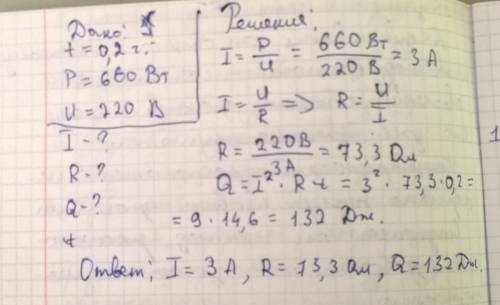 Дано:
t = 0,2 г.
P = 660 Вт
U = 220 В
I - ?
R - ?
Q - ?
Решение:
I = P/U = 660 Вт/220 В = 3 А
I = U/R => R = U/I
R = 220 В/3А = 73,3 Ом
Q = I² · R · t = 3² · 73,3 · 0,2 =
= 9 · 14,6 = 132 Дж.
Ответ: I = 3 А, R = 73,3 Ом, Q = 132 Дж.
1